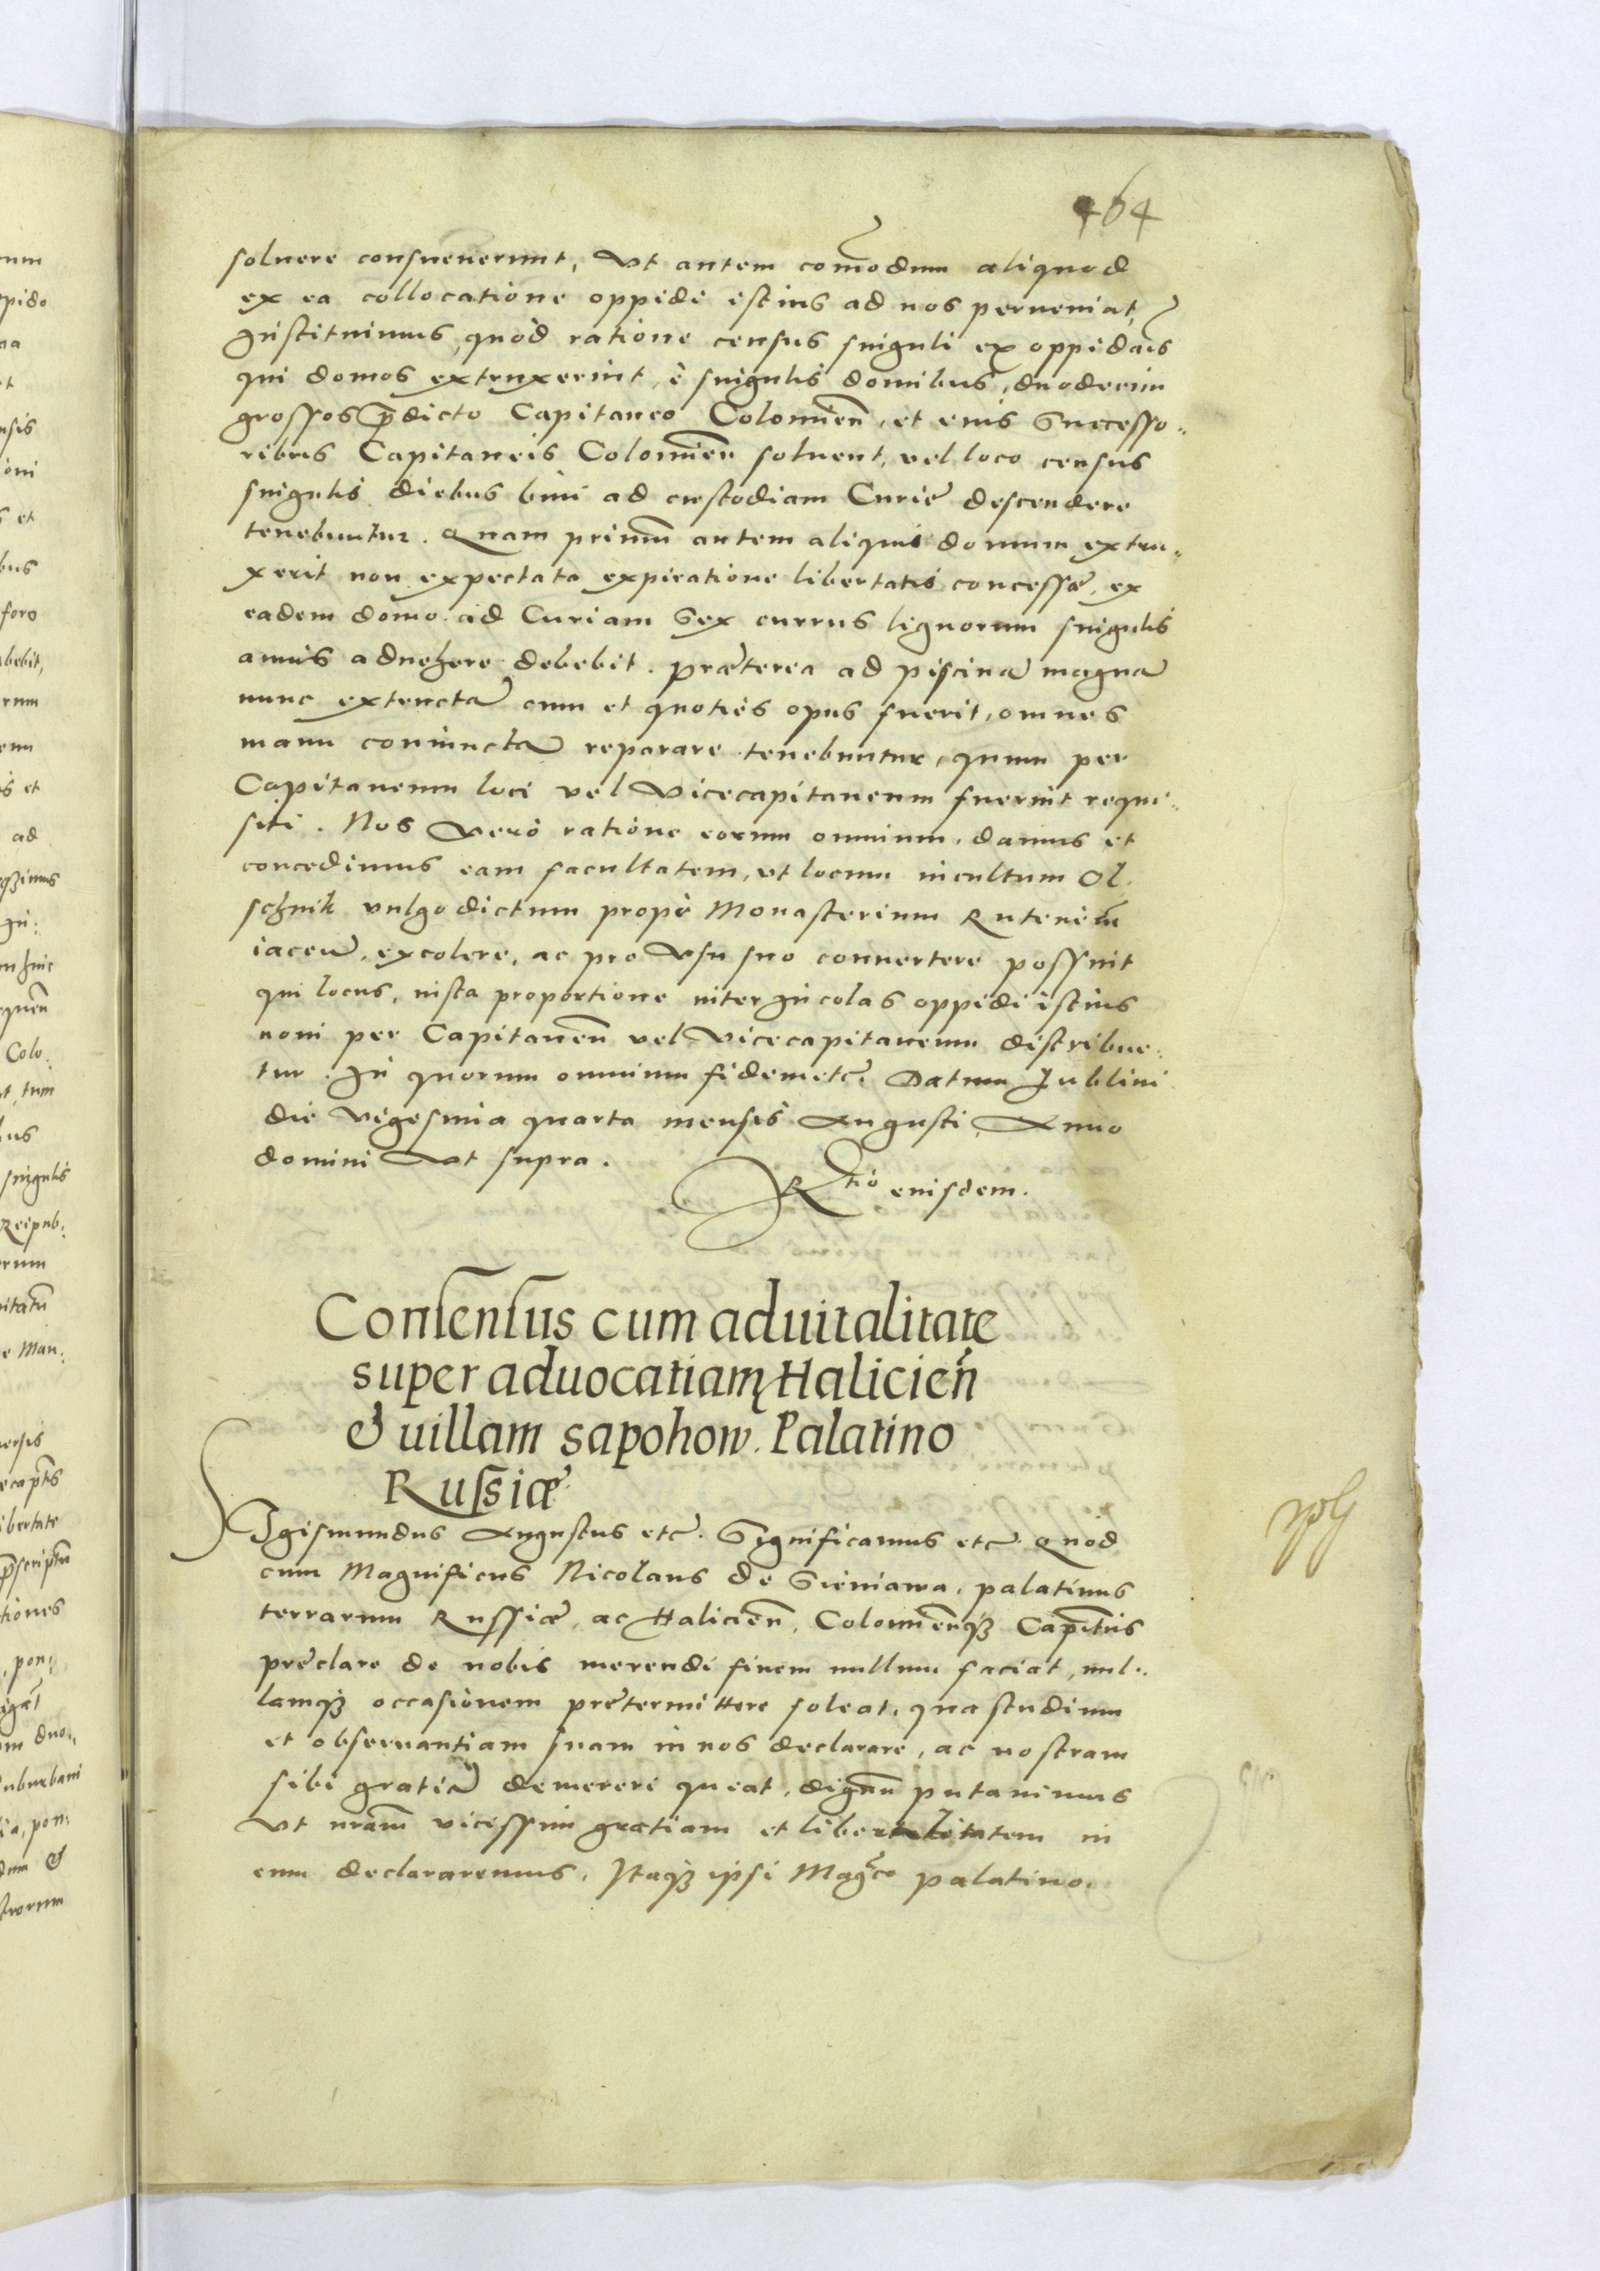 464
soluere consueuerunt, Vt autem com̃odum aliquod
ex ea collocatione oppidi istius ad nos perueniat,
Instituimus, quòd ratione census singuli ex oppidanis
qui domos extruxerint, è singulis domibus, duodecim
grossos p̄dicto Capitaneo Colomien̄, et eius Successo-
ribus Capitaneis Colomien̄ soluent, vel loco census
singulis diebus bini ad custodiam Curię descendere
tenebuntur. Quam primum autem aliquis domum extru-
xerit non expectata expiratione libertatis concessæ, ex
eadem domo ad Curiam Sex currus lignorum singulis
annis aduehere debebit. præterea ad piscinā magnā
nunc extructā cum et quoties opus fuerit, omnes
manu coniunctā reparare tenebuntur, quum per
Capitaneum loci vel Vicecapitaneum fuerint requi-
siti. Nos Verò ratione eorum omnium, damus et
concedimus eam facultatem, vt locum incultum Ol-
schnik vulgo dictum propè Monasterium Rutenicū
iacen̄, excolere, ac pro Vsu suo conuertere possint
qui locus, iusta proportione inter Incolas oppidi istius
noui per Capitaneū vel Vicecapitaneum distribue-
tur. In quorum omnium fidem etc̃. Datum Lublini
die Vigesima quarta mensis Augusti, Anno
domini Vt supra.
Rtio eiusdem.
Consensus cum aduitalitate
super aduocatiam Halicien̄
& uillam sapohow. Palatino
Russiæ
SIgismundus Augustus etc̃. Significamus etc̃ Quod
cum Magnificus Nicolaus de Sieniawa, palatinus
terrarum Russiæ, ac Halicien̄, Colomien̄qȝ Capitn̄s
pręclare de nobis merendi finem nullum faciat, nul-
lamqȝ occasionem prętermittere soleat, qua studium
et obseruantiam suam in nos declarare, ac nostram
sibi gratiā demereri queat, dignū putauimus
Vt nr̄am vicissim gratiam et liberalitatem in
eum declararemus, Itaqȝ ipsi Mag̃co palatino